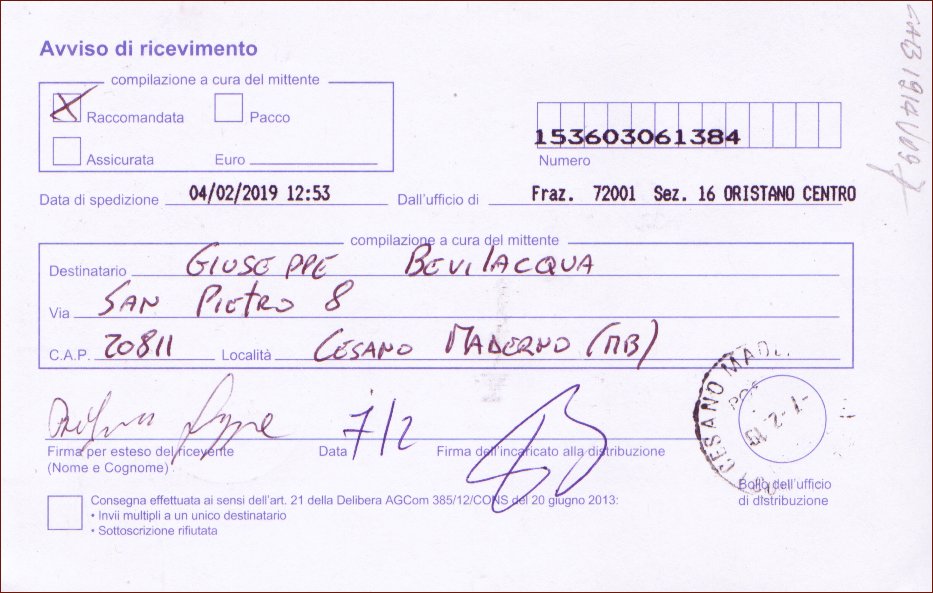 Avviso di ricevimento
compilazione a cura del mittente
Raccomandata Pacco
Assicurata Euro
153603061384
Numero
Data di spedizione 04/02/2019 12:53 Dall'ufficio di Fraz. 72001 Sez. 16 ORISTANO CENTRO
compilazione a cura del mittente
Destinatario GIUSEPPE BEVILACQUA
Via SAN PIETRO 8
C.A.P. 20811 Località CESANO MADERNO (MB)
7/2
Firma per esteso del ricevente Data Firma dell'incaricato alla distribuzione
(Nome e Cognome)
CESANO MAD
-7-2-19
Bollo dell'ufficio
di distribuzione
Consegna effettuata ai sensi dell'art. 21 della Delibera AGCom 385/12/CONS del 20 giugno 2013:
• Invii multipli a un unico destinatario
• Sottoscrizione rifiutata